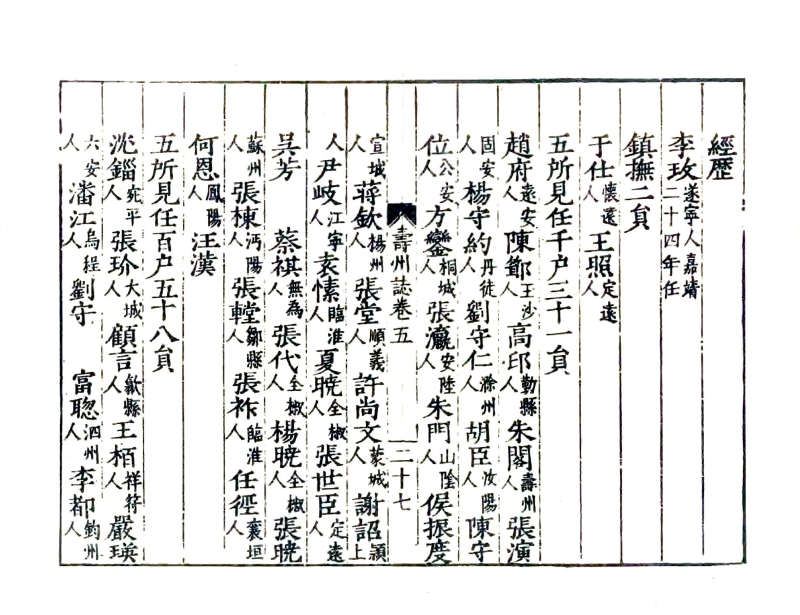 經歷
李玫遂寧人嘉靖二十四年任
鎮撫二員
于仕懷遠人王照定遠人
五所見任千户三十一員
趙府遠安人陳鄼王沙人高邱勤縣人朱閣壽州人張演
固安人楊守約丹徒人劉守仁滁州人胡臣汝陽人陳守
位公安人方鑾桐城人張瀛安陸人朱門山陰人侯振度
壽州誌卷五 二十七
宣城人蔣欽楊州人張堂順義人許尚文蒙城人謝詔潁上
人尹岐江寧人袁愫臨淮人夏曉全椒人張世臣定遠人
吳芳 蔡祺無為人張代全椒人楊曉全椒人張曉
蘇州人張棟沔陽人張鏜鄒縣人張祚臨淮人任徑襄垣人
何恩鳳陽人汪漢
五所見任百户五十八員
沈錙宛平人張玠大城人顧言歙縣人王栢祥符人嚴瑛
六安人潘江烏程人劉守 富聦泗州人李都鈞州人